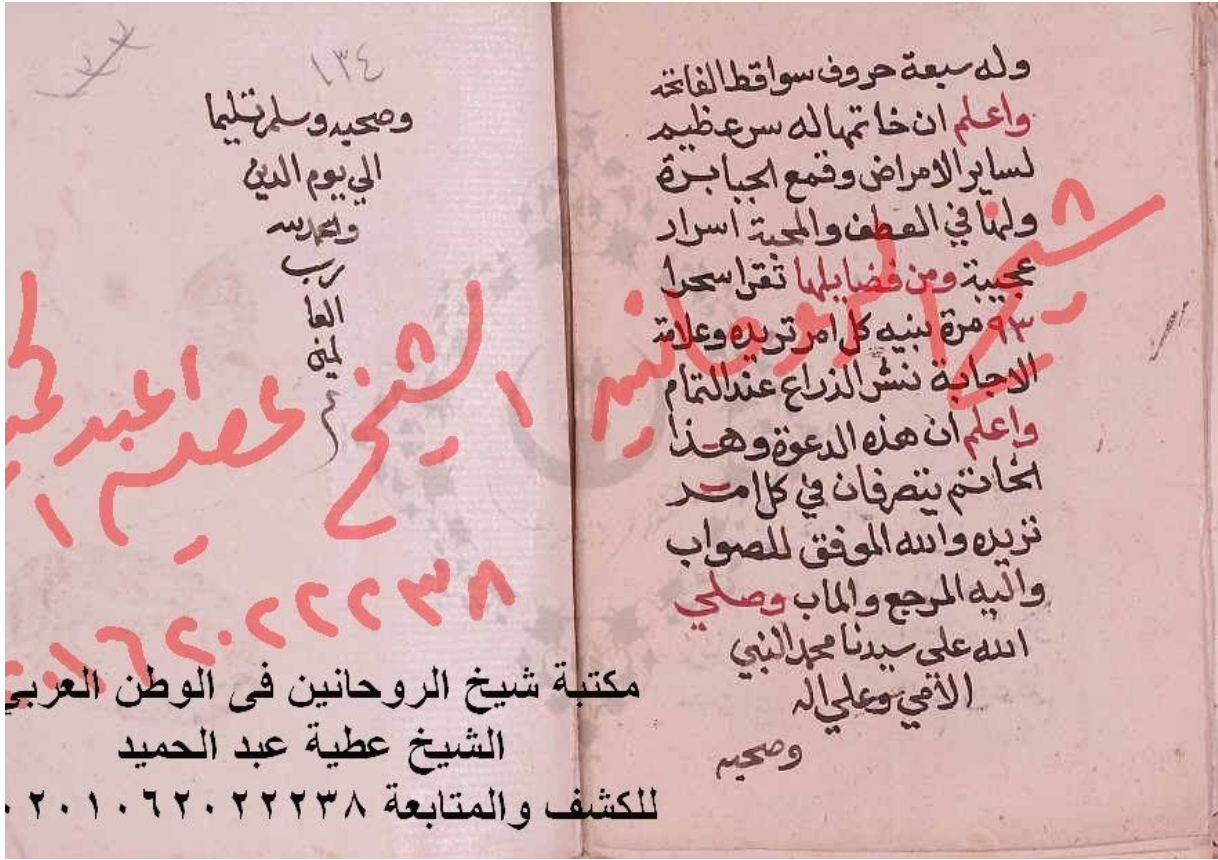 وله سبعة حروف سواقط الفاتحة
واعلم ان خاتمها له سر عظيم
لساير الامراض وقمع الجبابرة
ولها في العطف والمحبة اسرار
عجيبة ومن فضايلها تقرا سحرا
٩٣ مرة بنيه كل امر تريده وعلامة
الاجابة نشر الذراع عند التمام
واعلم ان هذه الدعوة وهذا
الخاتم يتصرفان في كل امر
تريده والله الموفق للصواب
واليه المرجع والماب وصلي
الله علي سيدنا محمد النبي
الامي وعلي اله
وصحبه
١٣٤
وصحبه وسلم تسليما
الي يوم الدين
والحمد لله
رب
العا
لمين
تم
شيخ الروحانين الشيخ عطيه عبد الحميد
٠١٠٦٢٠٢٢٢٣٨
مكتبة شيخ الروحانين فى الوطن العربي
الشيخ عطية عبد الحميد
للكشف والمتابعة ٠٢٠١٠٦٢٠٢٢٢٣٨